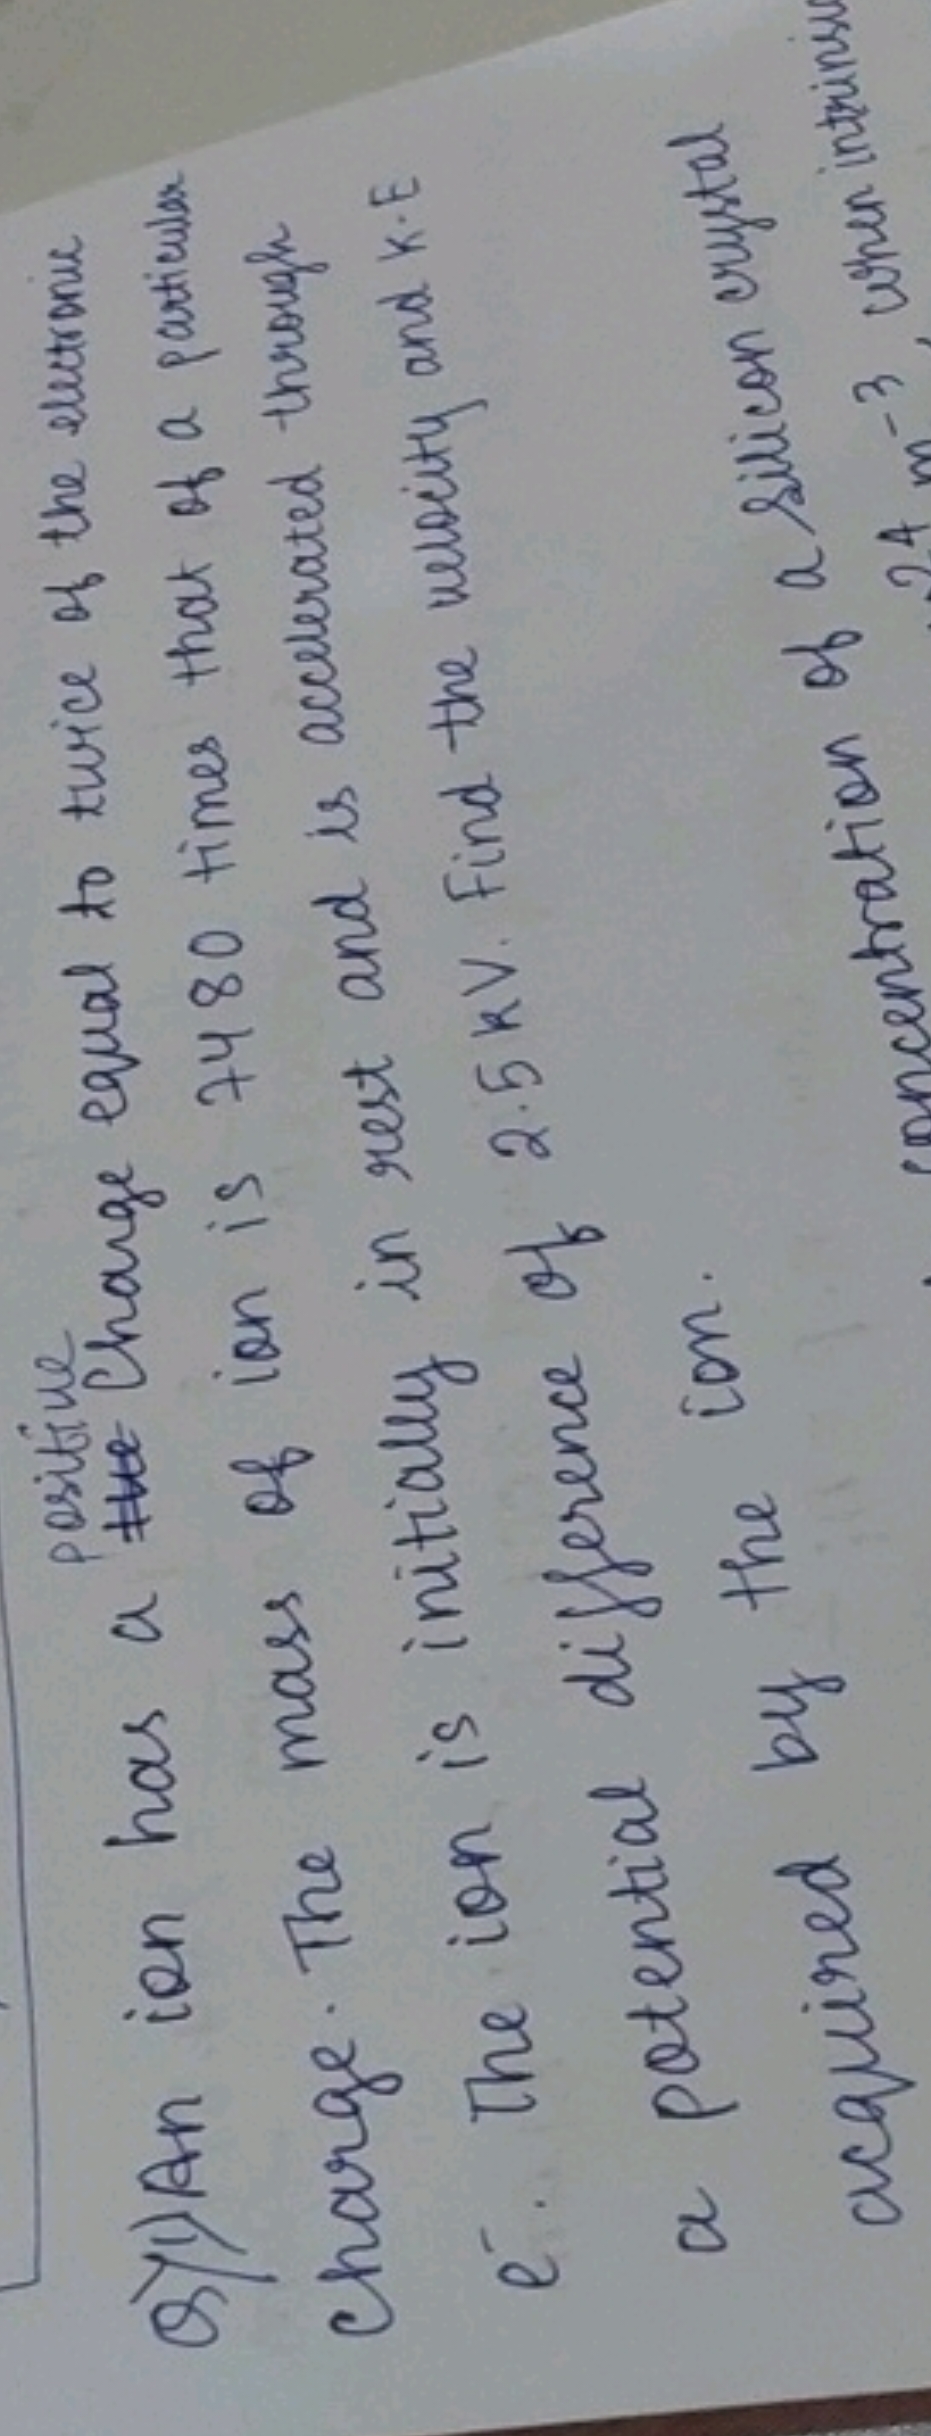 Q)1) An ion has a positive the Charge equal to twice of the electronic
Charge. The mass of ion is 7480 times that of a particular
e⁻. The ion is initially in rest and is accelerated through
a potential difference of 2.5 kV. Find the velocity and K.E
acquired by the ion.
concentration of a silicon crystal
m⁻³, when intrinsic